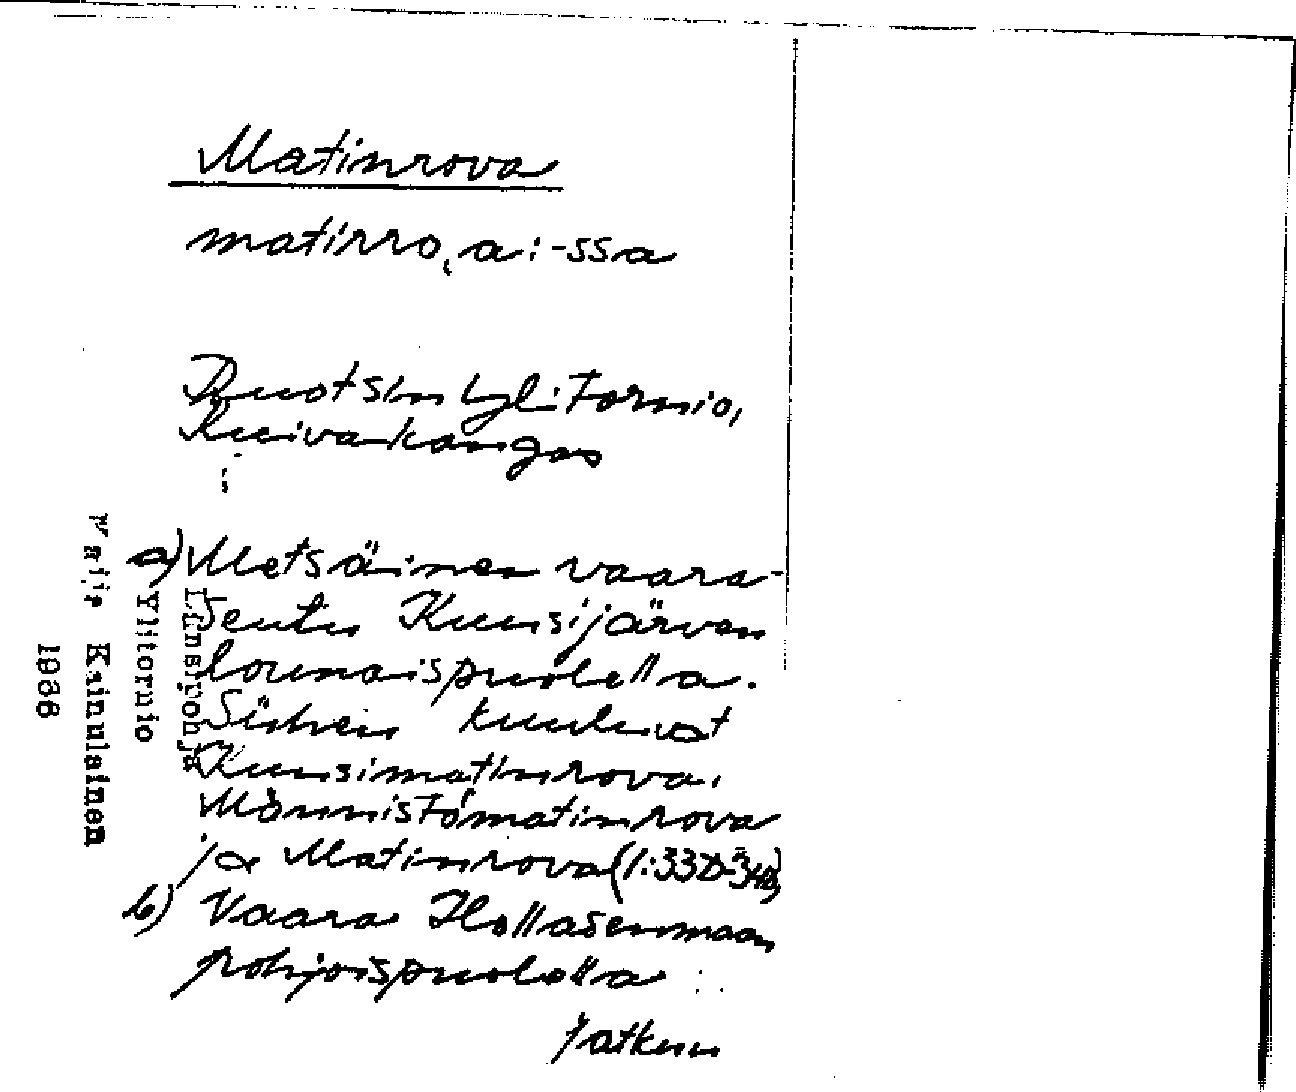 Matinrova
matirro͔a: -ssa
Ruotsin Ylitornio,
Kuivakangas
a) Metsäinen vaara-
seutu Kuusijärven
lounaispuolella.
Siihen kuuluvat
Kuusimatinrova,
Männistömatinrova
ja Matinrova (1:33D-34D)
b) Vaara Hollasenmaan
pohjoispuolella
jatkuu
Länsipohja
Ylitornio
Maija Kainulainen
1968